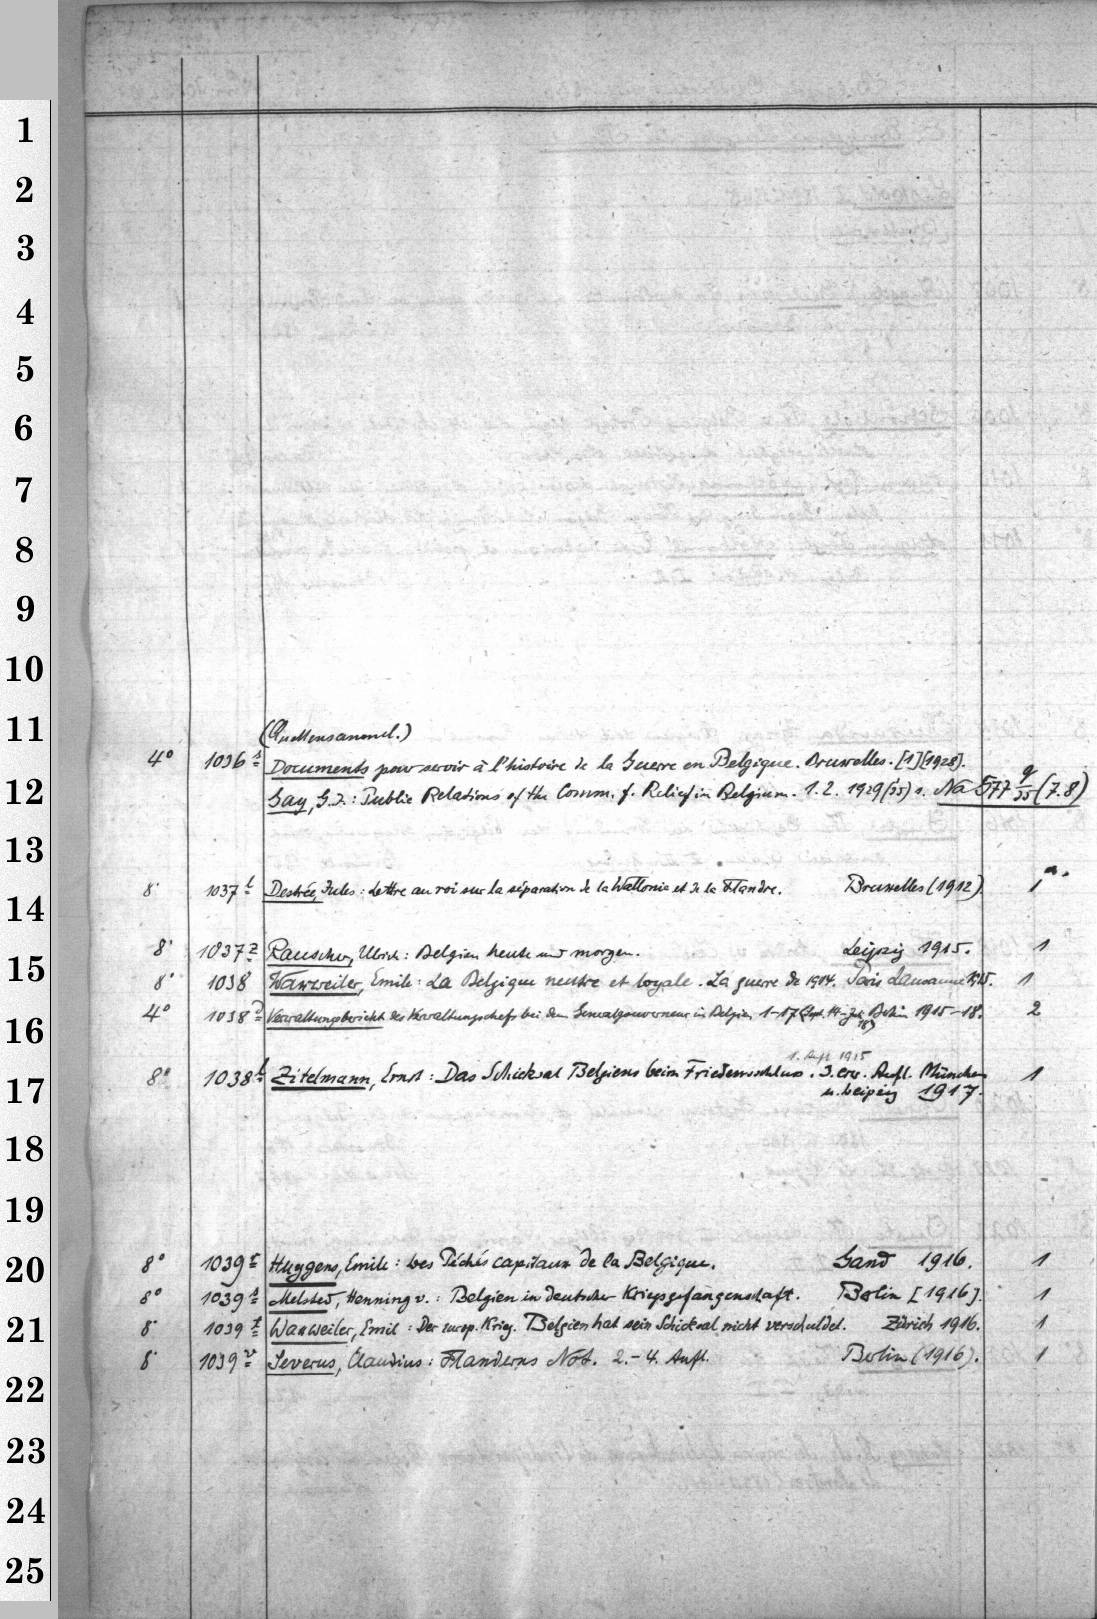 1
2
3
4
5
6
7
8
9
10
11
12
13
14
15
16
17
18
19
20
21
22
23
24
25
(Quellensamml.)
4° 1036 s Documents pour servoir à l'histoire de la Guerre en Belgique. Bruxelles. [1][1928].
Gay, G. I.: Public Relations of the Comm. f. Relief in Belgium. 1. 2. 1929 s. Na 577 (7.8)
8° 1037 t Destrée, Jules: Lettre au roi sur la séparation de la Wallonie et de la Flandre. Bruxelles (1912) 1
8° 1037 z Rauscher, Ulrich: Belgien heute und morgen. Leipzig 1915. 1
8° 1038 Waxweiler, Emile: La Belgique neutre et loyale. La guerre de 1914. Paris Lausanne 1915. 1
4° 1038 d Verwaltungsbericht des Verwaltungschefs bei dem Generalgouverneur in Belgien 1-17 Berlin 1915-18. 2
1. Aufl. 1915
8° 1038 f Zitelmann, Ernst: Das Schicksal Belgiens beim Friedensschluss. 3. erw. Aufl. München 1
u. Leipzig 1917.
8° 1039 r Huygens, Emile: Les Péchés capitaux de la Belgique. Gand 1916. 1
8° 1039 s Melsted, Henning v.: Belgien in deutscher Kriegsgefangenschaft. Berlin [1916]. 1
8° 1039 t Waxweiler, Emil: Der europ. Krieg. Belgien hat sein Schicksal nicht verschuldet. Zürich 1916. 1
8° 1039 v Severus, Claudius: Flanderns Not. 2.-4. Aufl. Berlin (1916). 1